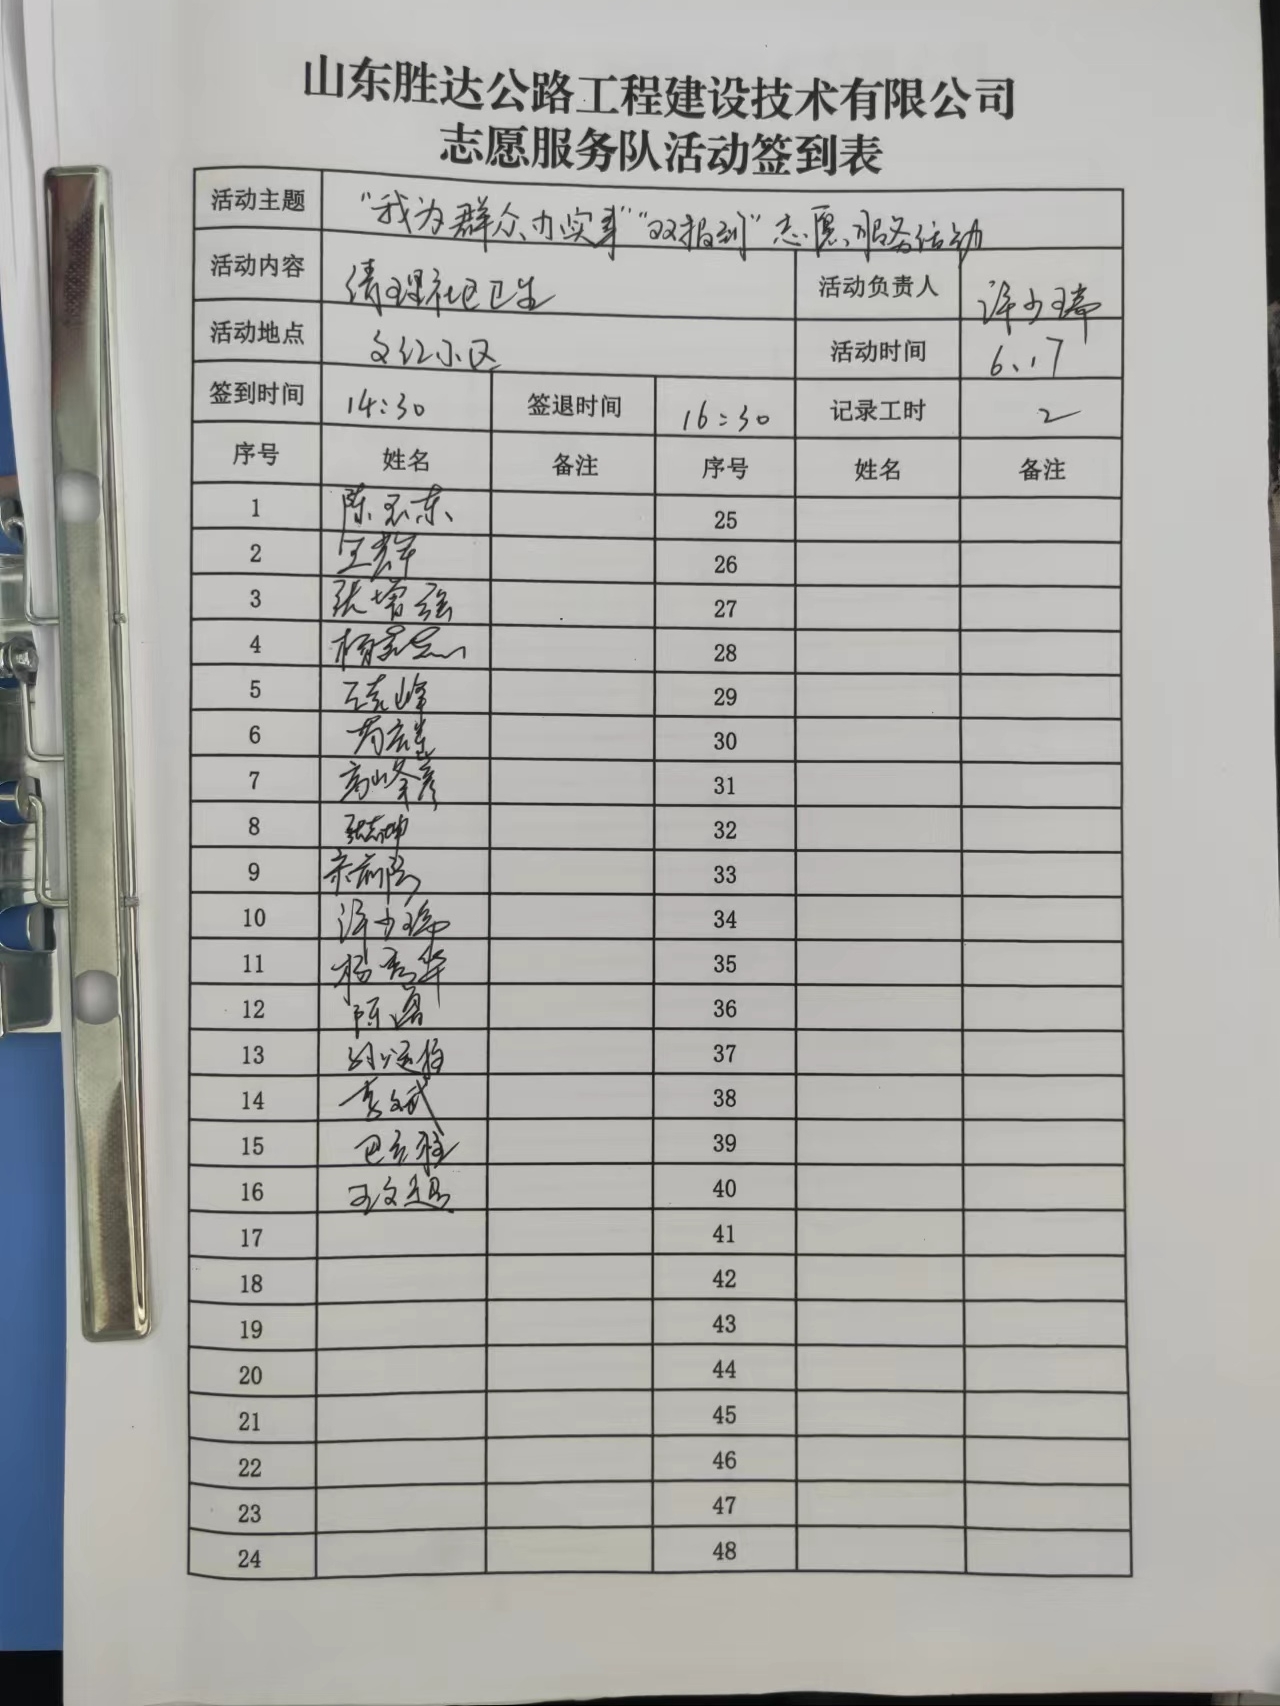 山东胜达公路工程建设技术有限公司
志愿服务队活动签到表
活动主题 "我为群众办实事""双报到"志愿服务活动
活动内容 清理社区卫生 活动负责人 许少瑞
活动地点 文汇小区 活动时间 6.17
签到时间 14:30 签退时间 16:30 记录工时 2
序号 姓名 备注 序号 姓名 备注
1 陈 东 25
2 王群 26
3 张增强 27
4 杨 28
5 王 峰 29
6 30
7 高峰彦 31
8 张志坤 32
9 宋 33
10 许少瑞 34
11 杨秀华 35
12 陈 36
13 37
14 李文武 38
15 巴 39
16 王文 40
17 41
18 42
19 43
20 44
21 45
22 46
23 47
24 48